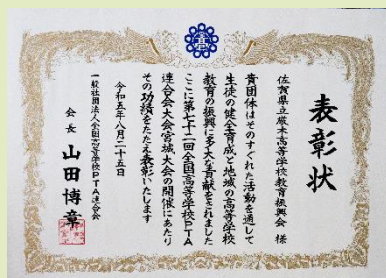 表彰状
佐賀県立厳木高等学校教育振興会 様
貴団体はそのすぐれた活動を通して
生徒の健全育成と地域の高等学校
教育の振興に多大な貢献をされました
ここに第七十二回全国高等学校PTA
連合会大会宮城大会の開催にあたり
その功績をたたえ表彰いたします
令和五年八月二十五日
一般社団法人全国高等学校PTA連合会
会長 山田博章